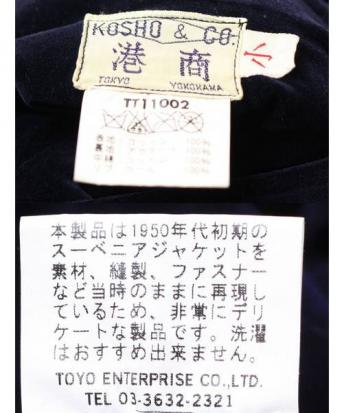 KOSHO & CO.
港商
小
TOKYO YOKOHAMA
TT11002
100%
100%
100%
100%
本製品は1950年代初期の
スーベニアジャケットを
素材、縫製、ファスナー
など当時のままに再現し
ているため、非常にデリ
ケートな製品です。洗濯
はおすすめ出来ません。
TOYO ENTERPRISE CO.,LTD.
TEL 03-3632-2321